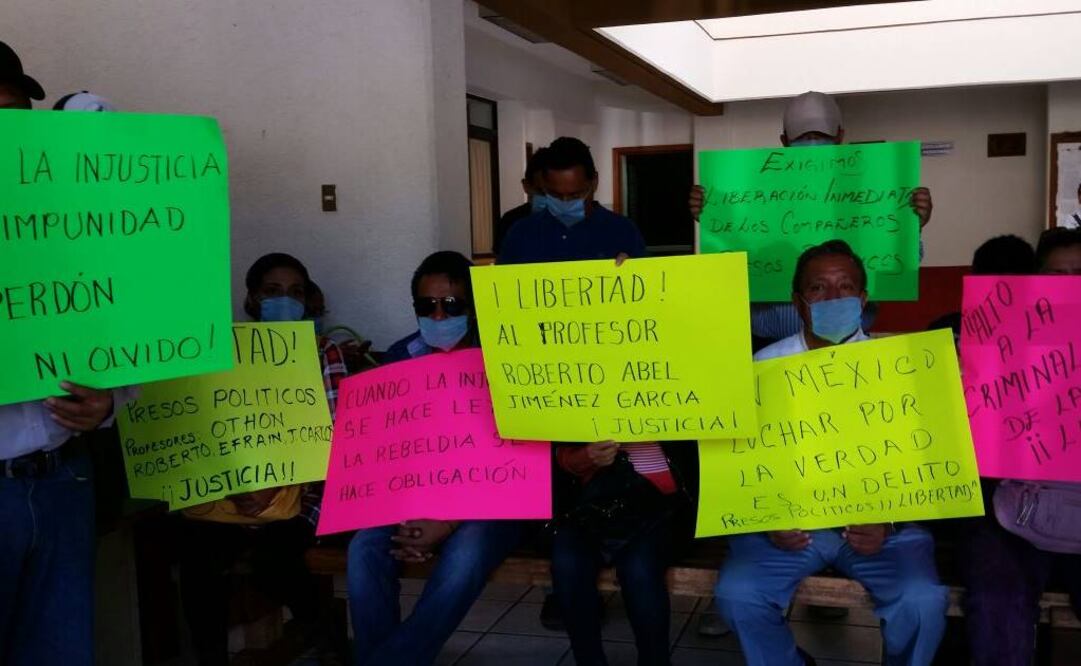 LA INJUSTICIA
IMPUNIDAD
PERDÓN
NI OLVIDO!
TAD!
PRESOS POLITICOS
PROFESORES: OTHON
ROBERTO, EFRAIN, J. CARLOS
¡¡JUSTICIA!!
CUANDO LA INJ
SE HACE LE
LA REBELDIA SE
HACE OBLIGACIÓN
¡ LIBERTAD !
AL PROFESOR
ROBERTO ABEL
JIMÉNEZ GARCIA
¡JUSTICIA!
EXIGIMOS
LIBERACIÓN INMEDIATA
DE LOS COMPAÑEROS
N MÉXICO
LUCHAR POR
LA VERDAD
ES UN DELITO
PRESOS POLITICOS ¡¡LIBERTAD!!
¡ALTO A LA
CRIMINAL
DE LA
¡¡ LI